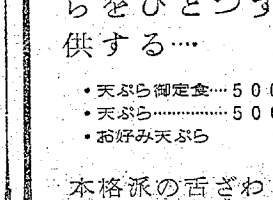 らをひとつず
供する…
・天ぷら御定食…500
・天ぷら……………500
・お好み天ぷら
本格派の舌ざわ